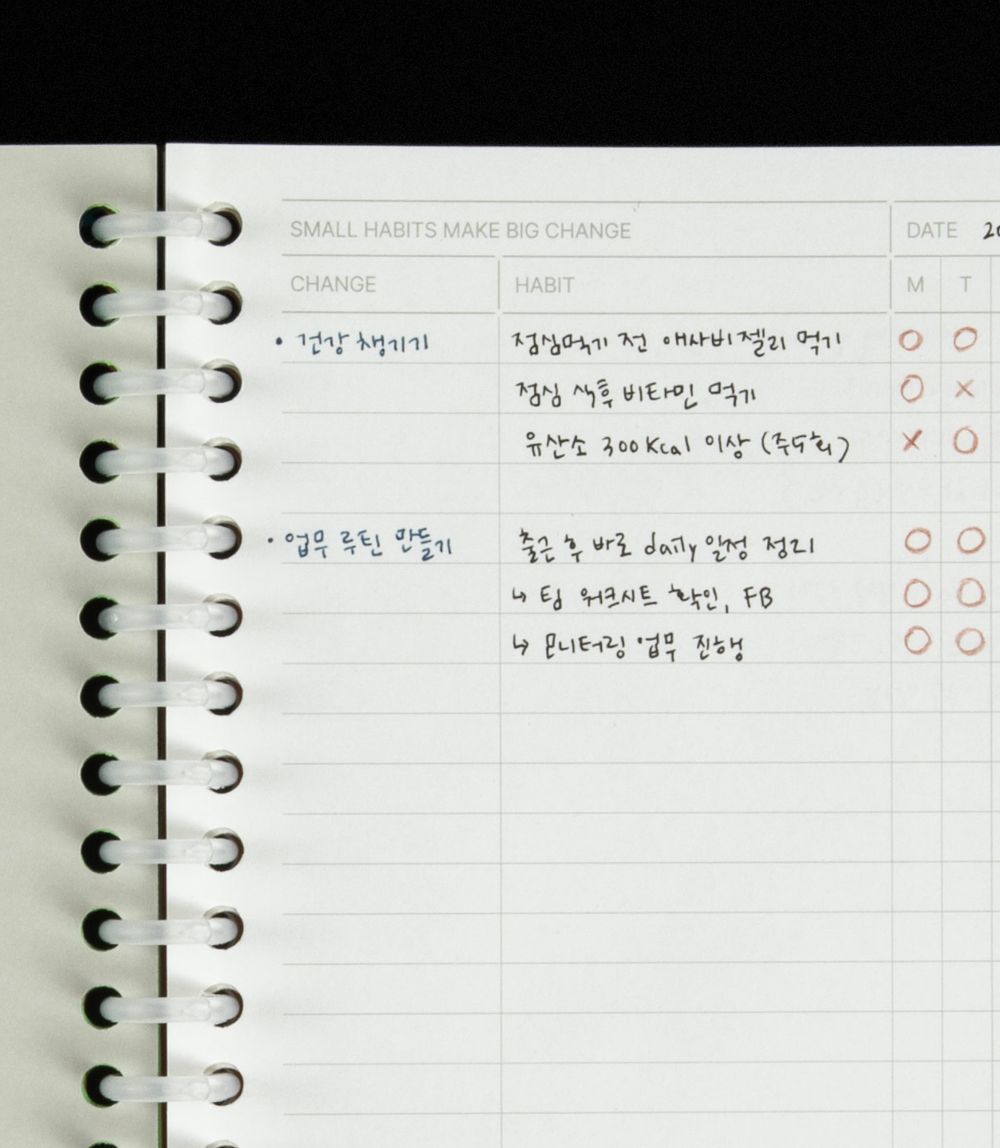 SMALL HABITS MAKE BIG CHANGE DATE 20
CHANGE HABIT M T
• 건강 챙기기 점심먹기 전 애사비젤리 먹기 O O
점심 식후 비타민 먹기 O X
유산소 300Kcal 이상 (주5회) X O
• 업무 루틴 만들기 출근 후 바로 daily 일정 정리 O O
↳ 팀 워크시트 확인, FB O O
↳ 모니터링 업무 진행 O O